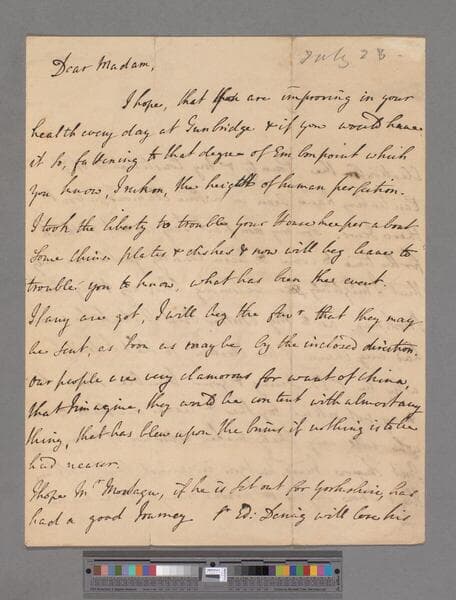 July 28
Dear Madam,
I hope, that you are improving in your
health every day at Tunbridge & if you would have
it so, fattening to that degree of Embonpoint which
you know, I reckon, the height of human perfection.
I took the liberty to trouble your Housekeeper about
some china plates & dishes & now will beg leave to
trouble you to know, what has been the event.
If any are got, I will beg the favr. that they may
be sent, as soon as maybe, by the inclosed direction.
our people are very clamorous for want of China,
that I imagine, they would be content with almost any
thing, that has blew upon the brims if nothing is to be
had nearer.
I hope Mr. Montagu, if he is set out for Yorkshire, has
had a good Journey Sr. Ed: Dering will lose his